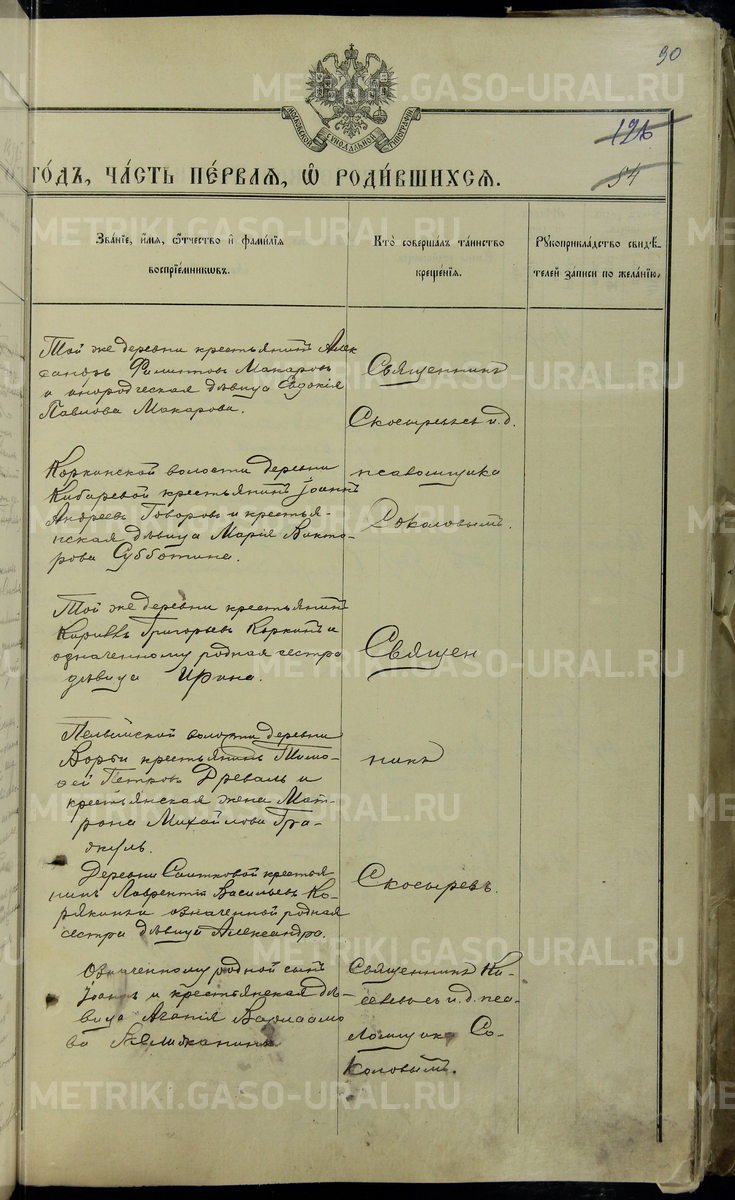 90
126
54
МОСКОВСКОЙ СѴНОДАЛЬНОЙ ТИПОГРАФІИ
ГО́ДЪ, ЧА́СТЬ ПЕ́РВАЯ, Ѡ҆ РОДИ́ВШИХСЯ.
Зва́нїе, и҆́мѧ, ѻ҆́тчество и҆ фами́лїѧ
воспрїе́мникѡвъ.
Кто̀ соверша́лъ та́инство
креще́нїѧ.
Рꙋкоприкла́дство свидѣ́-
телей за́писи по жела́нїю.
Той же деревни крестьянинъ Алек
сандръ Филиппов Макаровъ
и инородческая дѣвица Евдокія
Павлова Макарова.
Священникъ
Скосыревъ съ и.д.
псаломщика
Соколовымъ.
Коркинской волости деревни
Кибиревой крестьянинъ Іоаннъ
Андреевъ Говоровъ и крестья-
нская дѣвица Марія Викто-
рова Субботина.
Той же деревни крестьянинъ
Кириллъ Григорьевъ Коркинъ и
означенному родная сестра
дѣвица Ирина.
Священ
никъ
Скосыревъ.
волости деревни
крестьянинъ Тимо-
фей Петровъ Древаль и
крестьянская жена Мат-
рона Михайлова Гра-
Деревни Саитковой крестья
нинъ Лаврентій Васильевъ Ко-
рякинъ и означенной родная
сестра дѣвица Александра.
Означенному родной сынъ
Іоаннъ и крестьянская дѣ-
вица Агапія Варлаамо
ва
Священникъ Ки-
селевъ съ и.д. пса-
ломщика Со-
коловымъ.
METRIKI.GASO-URAL.RU